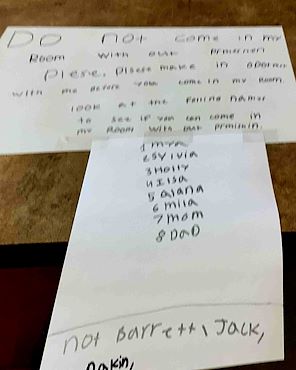 DO not come in my
Room with out prmisnon
Plese, Plese make in apointm
with me before you come in my Room.
look at the Foning names
to see if you can come in
my Room with out prmisnin.
1 myra
2 Sylvia
3 Holly
4 Ilsa
5 alana
6 mila
7 mom
8 DaD
not Barrett, Jack,
Dakin,